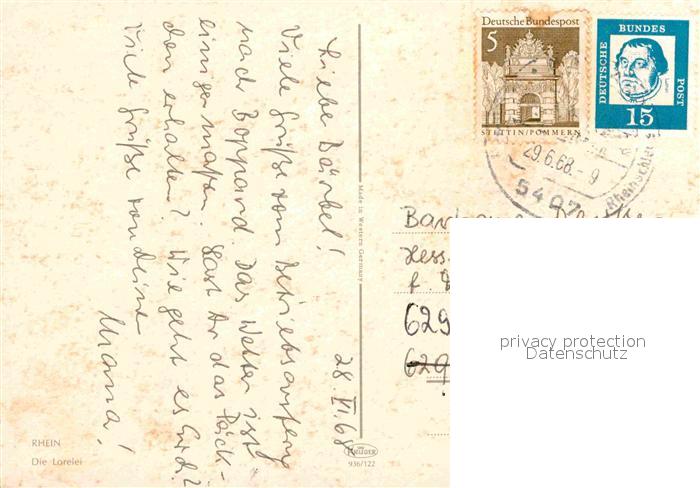 28.VI.68
Liebe Bärbel!
Viele Grüße vom Betriebsausflug
nach Boppard. Das Wetter ist
einigermaßen. Hast du das Päck-
chen erhalten? Wie geht es Euch?
Viele Grüße von Deiner
Mama!
RHEIN
Die Lorelei
Made in Western Germany
KRÜGER
936/122
Deutsche Bundespost
5
STETTIN/POMMERN
DEUTSCHE BUNDES POST
15
29.6.68.-9
5407
Rheinschleife
Hess.
629
629
privacy protection
Datenschutz